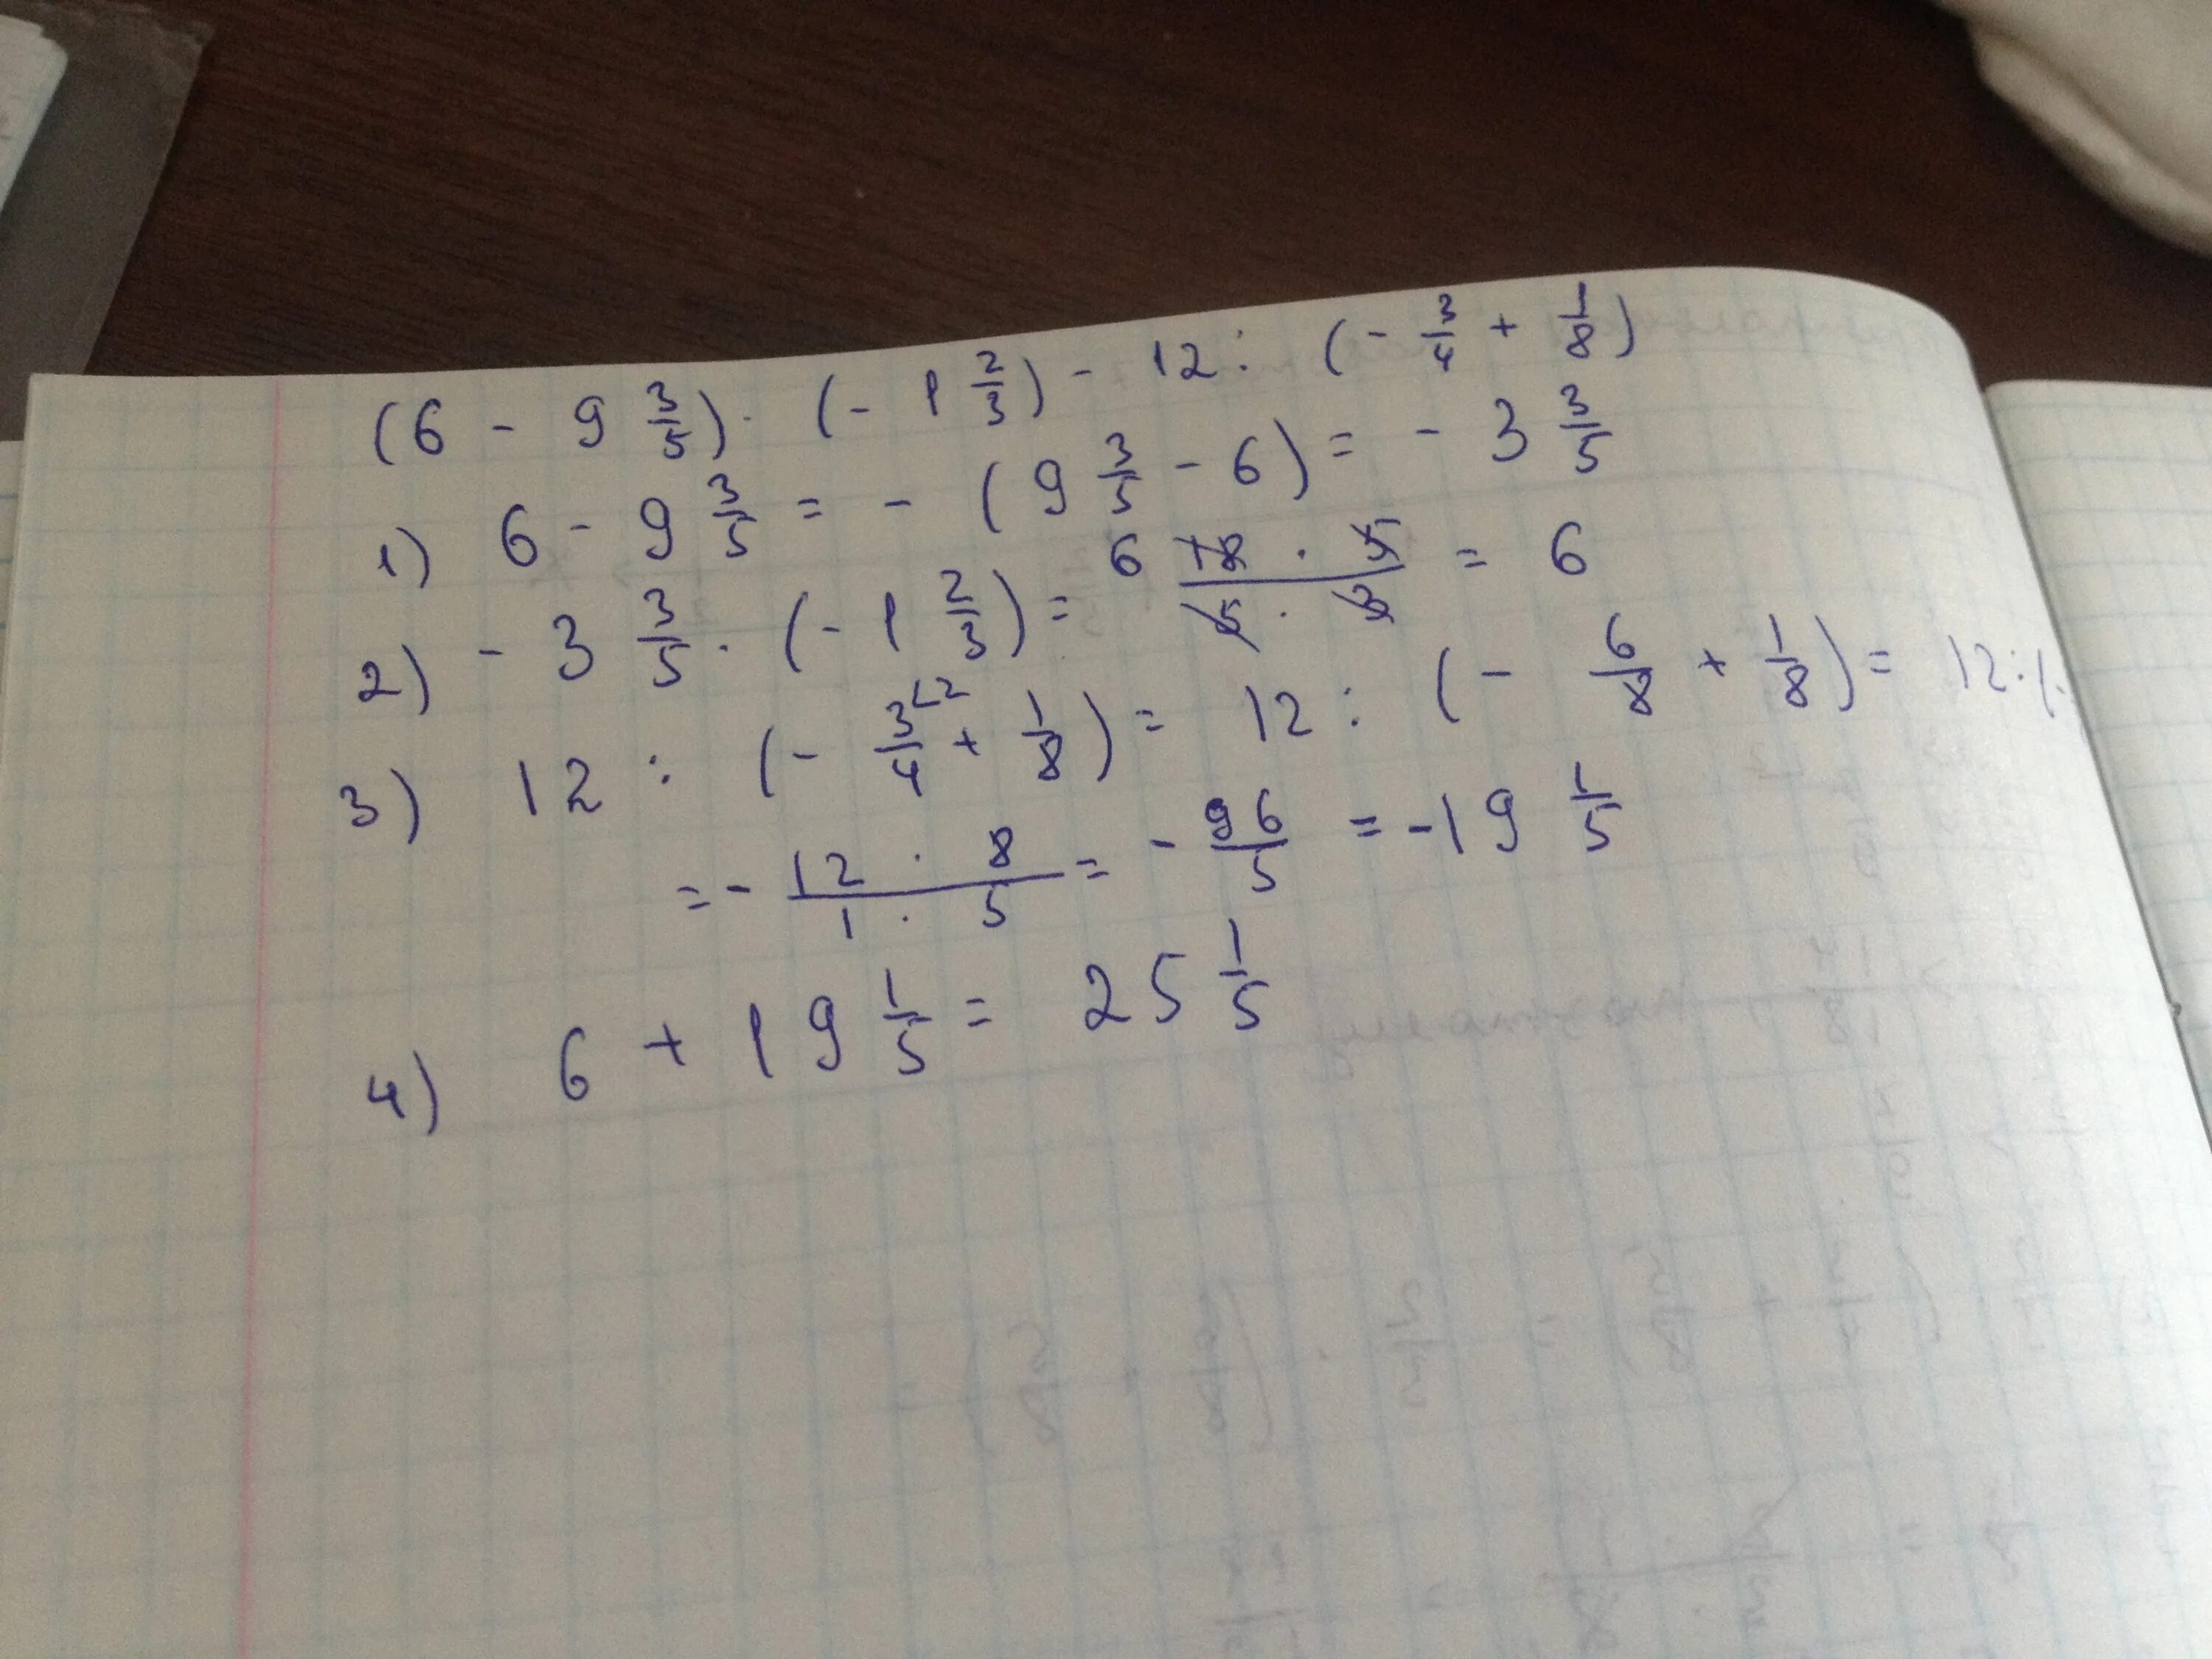 (6 - 9 3/5) · (- 1 2/3) - 12 : (- 3/4 + 1/8)
1) 6 - 9 3/5 = - (9 3/5 - 6) = - 3 3/5
2) - 3 3/5 · (- 1 2/3) = 6 18 · 5 / 5 · 3 = 6
3) 12 : (- 3/4 ∟2 + 1/8) = 12 : (- 6/8 + 1/8) = 12 : (-
= - 12 · 8 / 1 · 5 = - 96/5 = - 19 1/5
4) 6 + 19 1/5 = 25 1/5